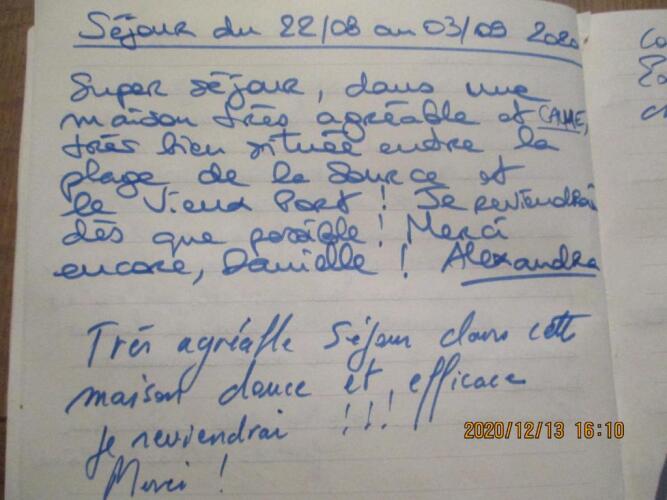 Séjour du 22/08 au 03/09 2020
Super séjour, dans une
maison très agréable et CALME,
très bien située entre la
plage de la Source et
le Vieux Port ! Je reviendrai
dès que possible ! Merci
encore, Danielle ! Alexandra
Très agréable séjour dans cette
maison douce et efficace
je reviendrai !!!
Merci !
2020/12/13 16:10